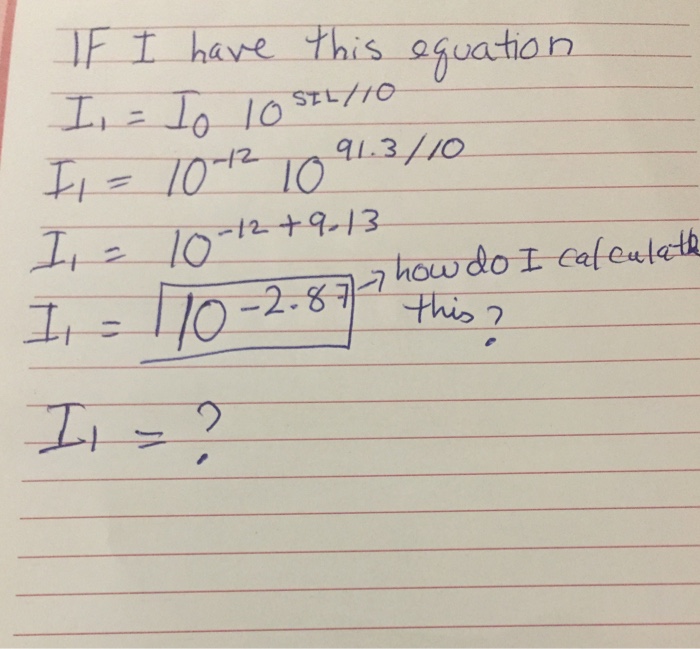 IF I have this equation
I₁ = I₀ 10^SIL/10
I₁ = 10^-12 10^91.3/10
I₁ = 10^-12+9.13
I₁ = 10^-2.87 → how do I calculate
this?
I₁ = ?